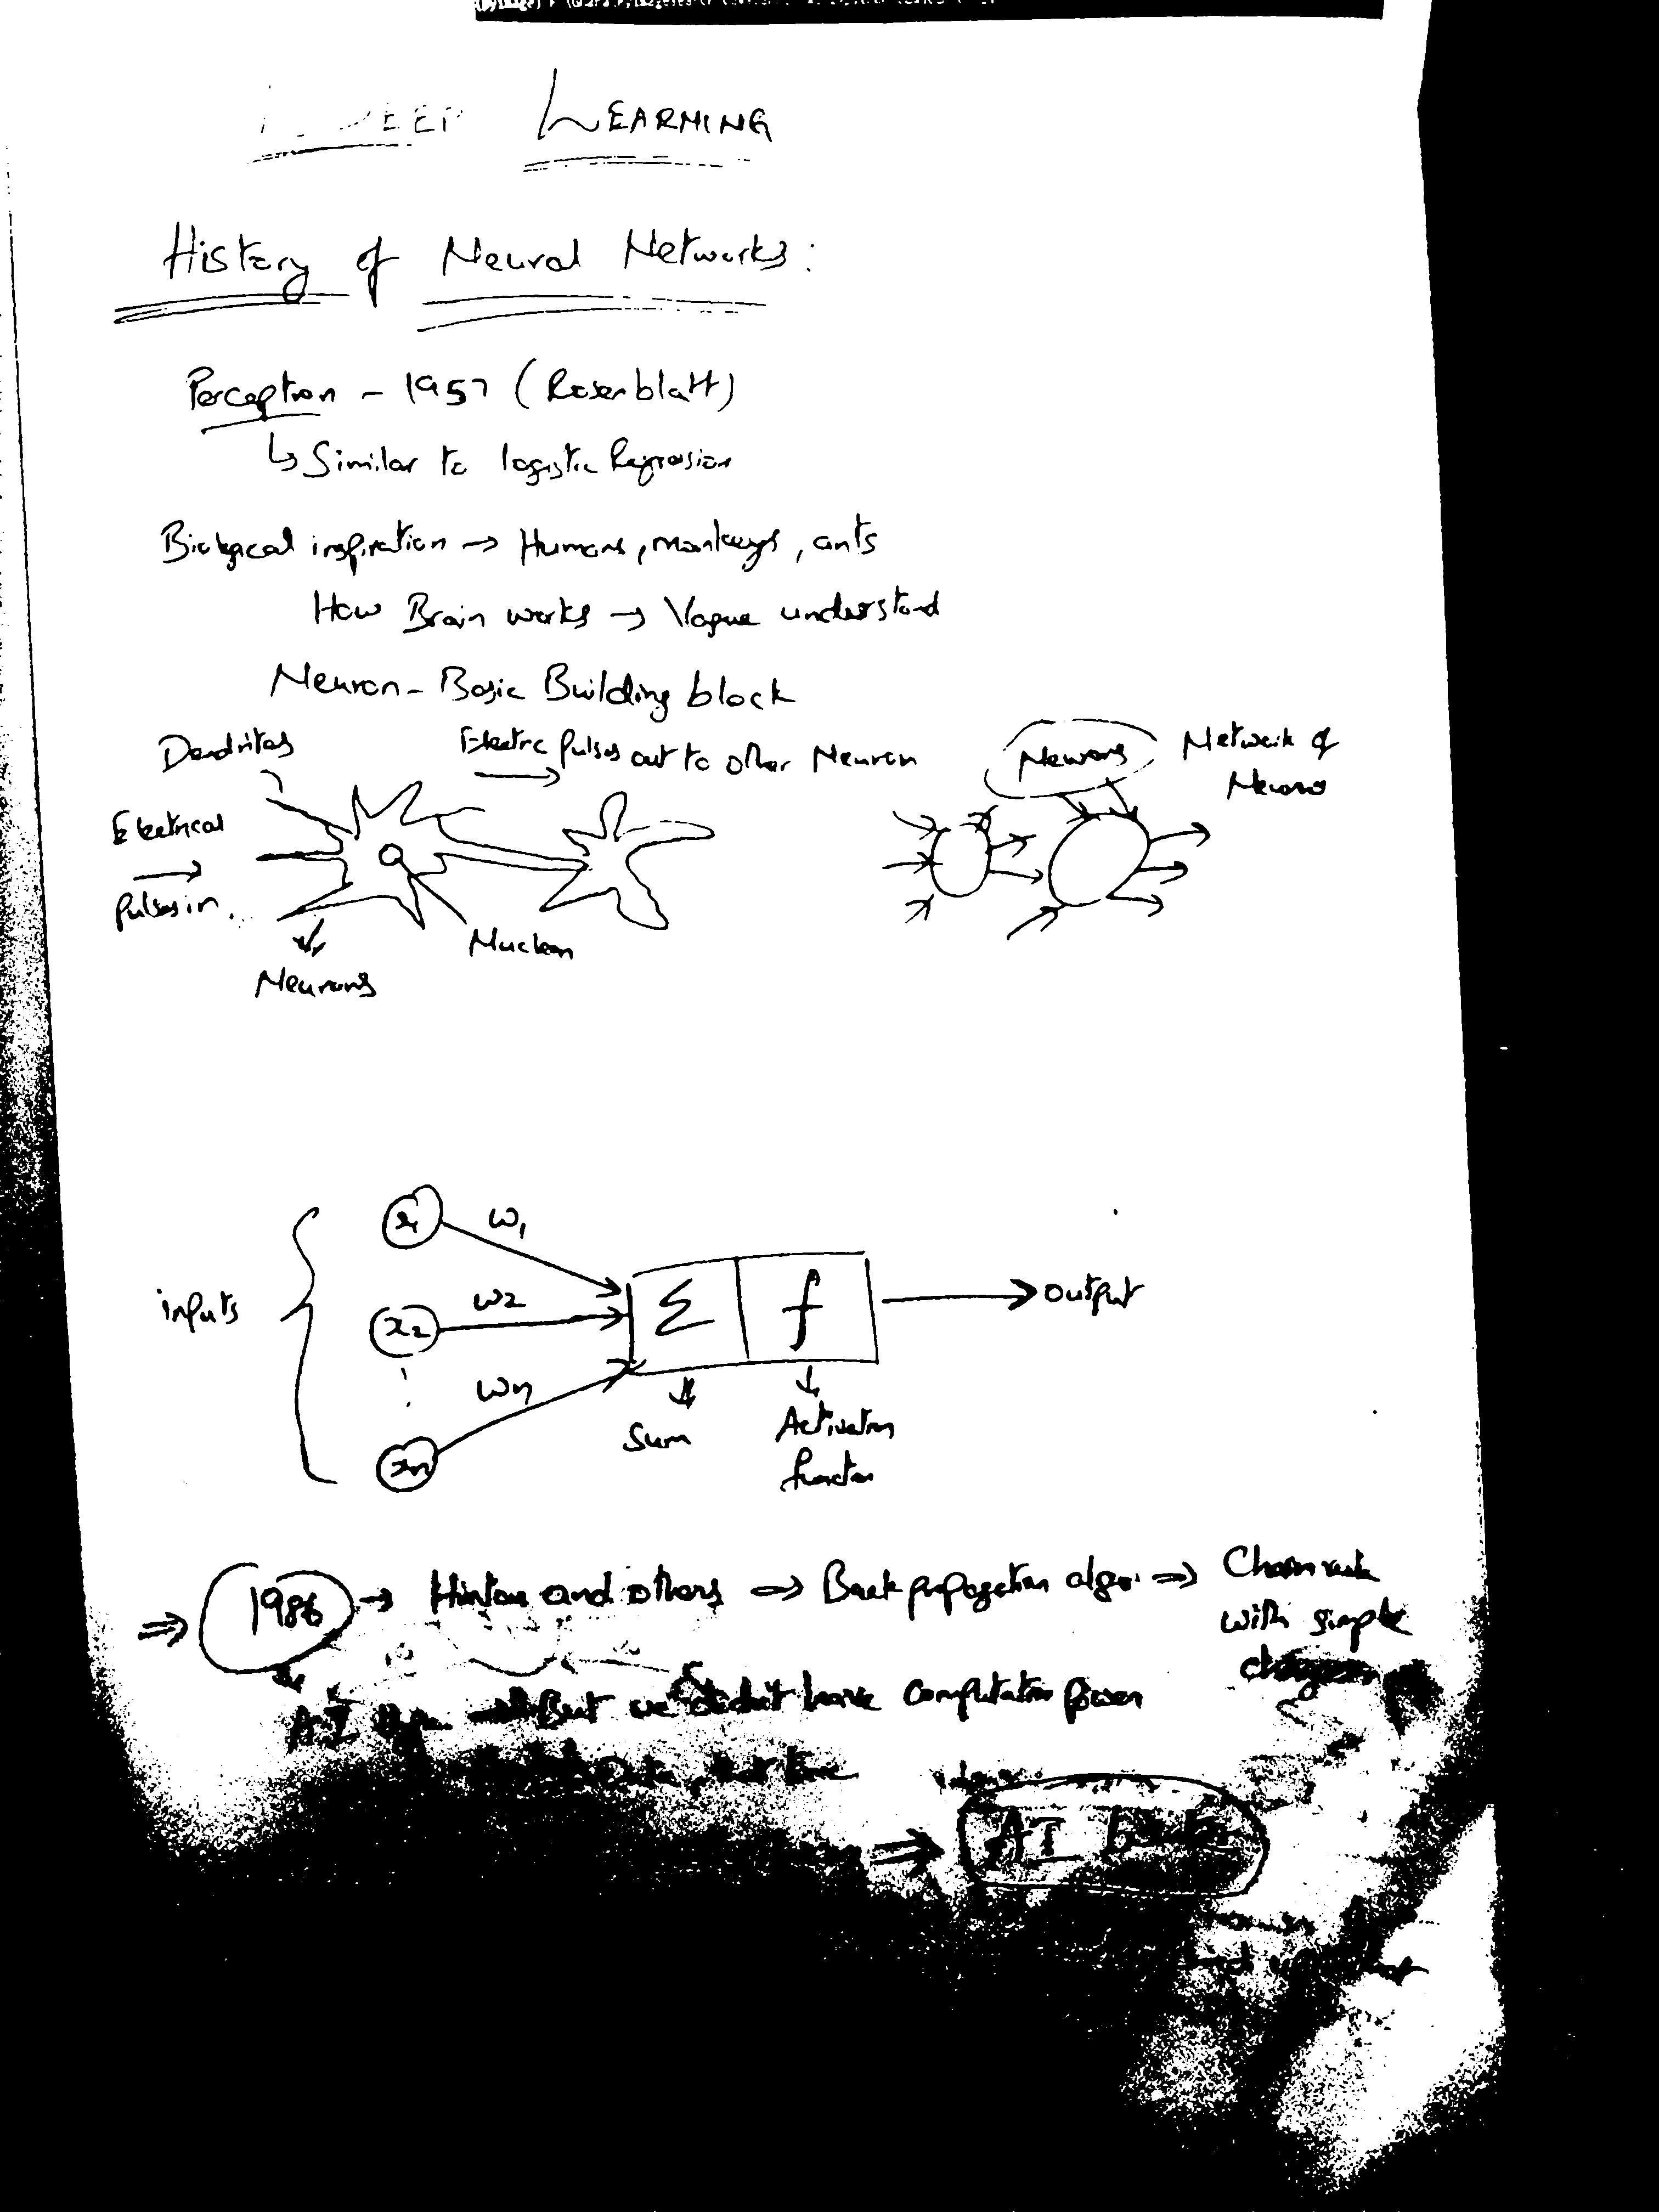 DEEP LEARNING
History of Neural Networks:
Perception - 1957 (Rosenblatt)
↳ Similar to logistic Regression
Biological inspiration → Humans, monkeys, ants
How Brain works → Vague understand
Neuron - Basic Building block
Dendrites
Electric Pulses out to other Neuron
Neurons
Network of
Neurons
Electrical
Pulses in
Neurons
inputs
x1
w1
x2
w2
xn
wn
Σ
f
Output
Sum
Activation
function
⇒ 1986 → Hinton and others ⇒ Back propagation algo. ⇒ Chain rule
with simple
A.I
But we didn't have computation power
⇒ AI